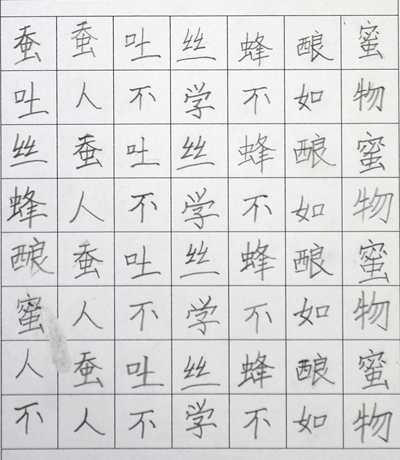 蚕蚕吐丝蜂酿蜜
吐人不学不如物
丝蚕吐丝蜂酿蜜
蜂人不学不如物
酿蚕吐丝蜂酿蜜
蜜人不学不如物
人蚕吐丝蜂酿蜜
不人不学不如物